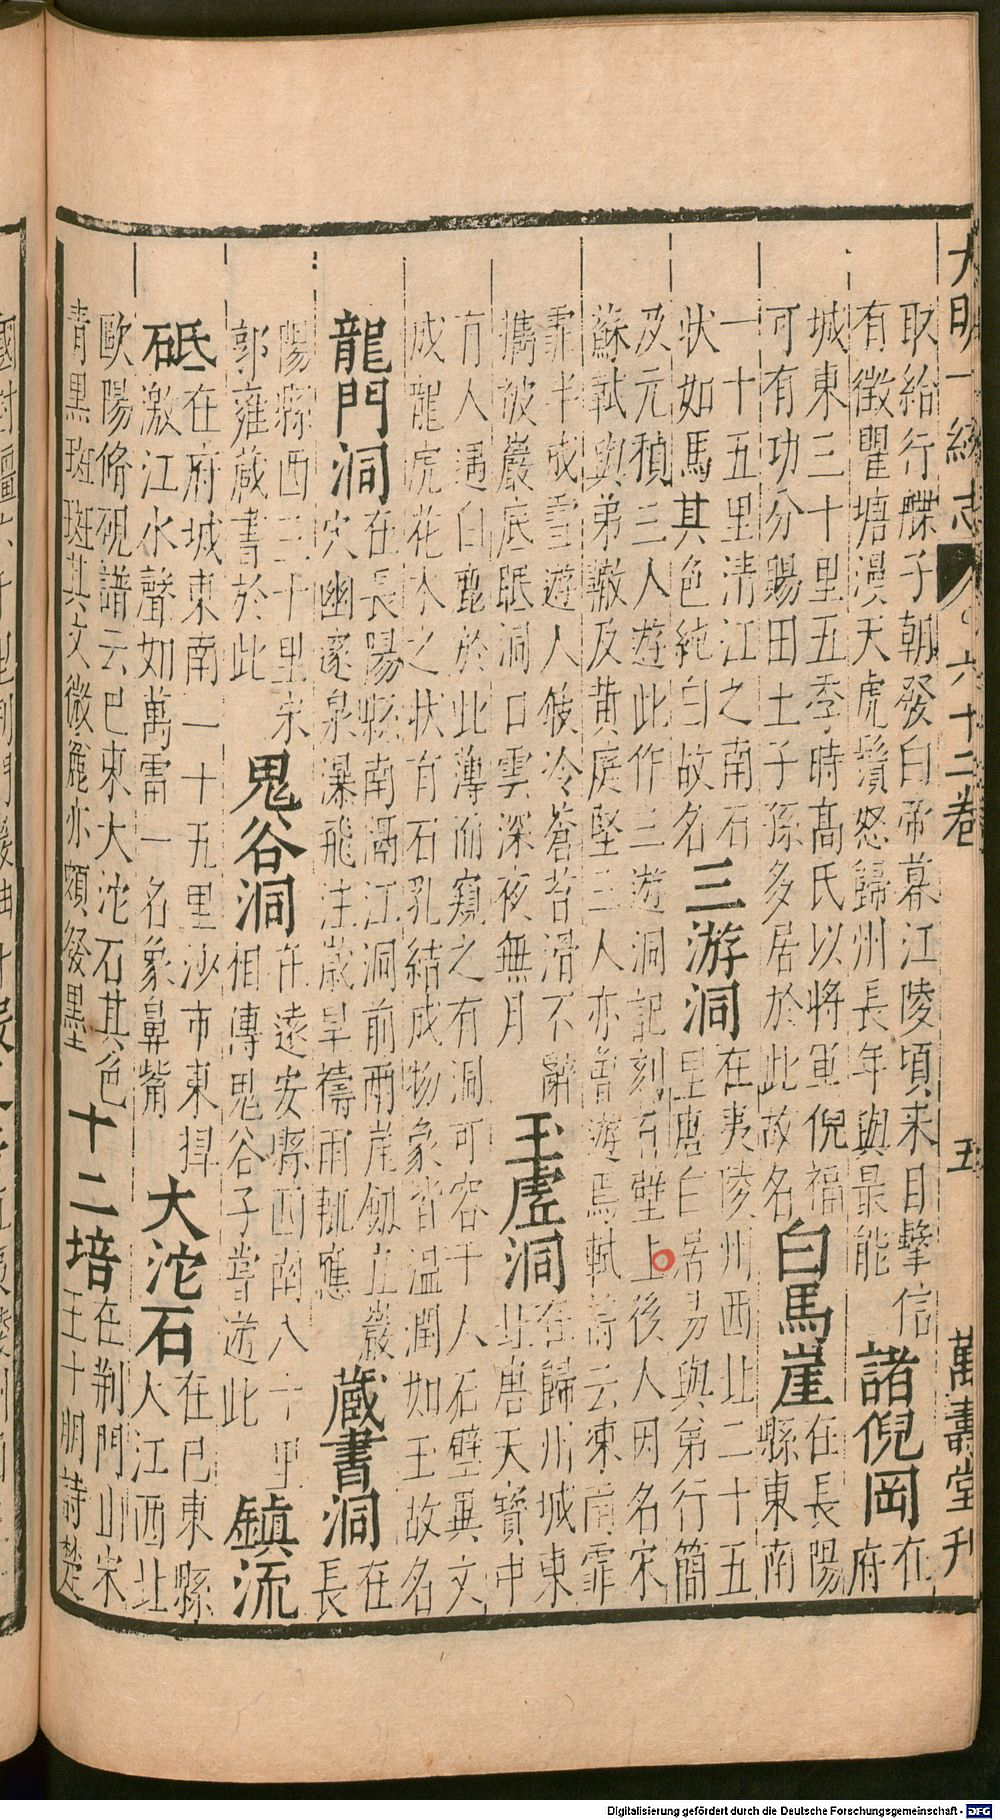 大明一統志 六十二卷 五 萬壽堂刊
取給行艓子朝發白帝暮江陵頃来目擊信
有徵瞿塘漫天虎鬚怒歸州長年與最能
諸倪岡
在府
城東三十里五季時髙氏以將軍倪福
可有功分賜田土子孫多居於此故名
白馬崖
在長陽
縣東南
一十五里清江之南石
状如馬其色純白故名
三游洞
在夷陵州西北二十五
里唐白居易與弟行簡
及元稹三人遊此作三遊洞記刻石壁上後人因名宋
蘇軾與弟轍及黄庭堅三人亦曽遊焉軾詩云凍雨霏
霏半成雪遊人屐冷蒼苔滑不辭
攜被巖底眠洞口雲深夜無月
玉虛洞
在歸州城東
北唐天寶中
有人遇白鹿於此薄而窺之有洞可容千人石壁異文
成龍虎花木之状有石乳結成物象皆温潤如玉故名
龍門洞
在長陽縣南滆江洞前兩崖劔立巖
穴幽邃泉瀑飛注歲旱禱雨輒應
藏書洞
在長
陽縣西三十里宋
郭雍藏書於此
鬼谷洞
在遠安縣西南八十里
相傳鬼谷子嘗遊此
鎮流
砥
在府城東南一十五里沙市東捍
激江水聲如萬雷一名象鼻觜
大沱石
在巴東縣
大江西北
歐陽脩硯譜云巴東大沱石其色
青黒斑斑其文微麄亦頗發墨
十二培
在荆門山宋
王十朋詩楚
Digitalisierung gefördert durch die Deutsche Forschungsgemeinschaft - DFG